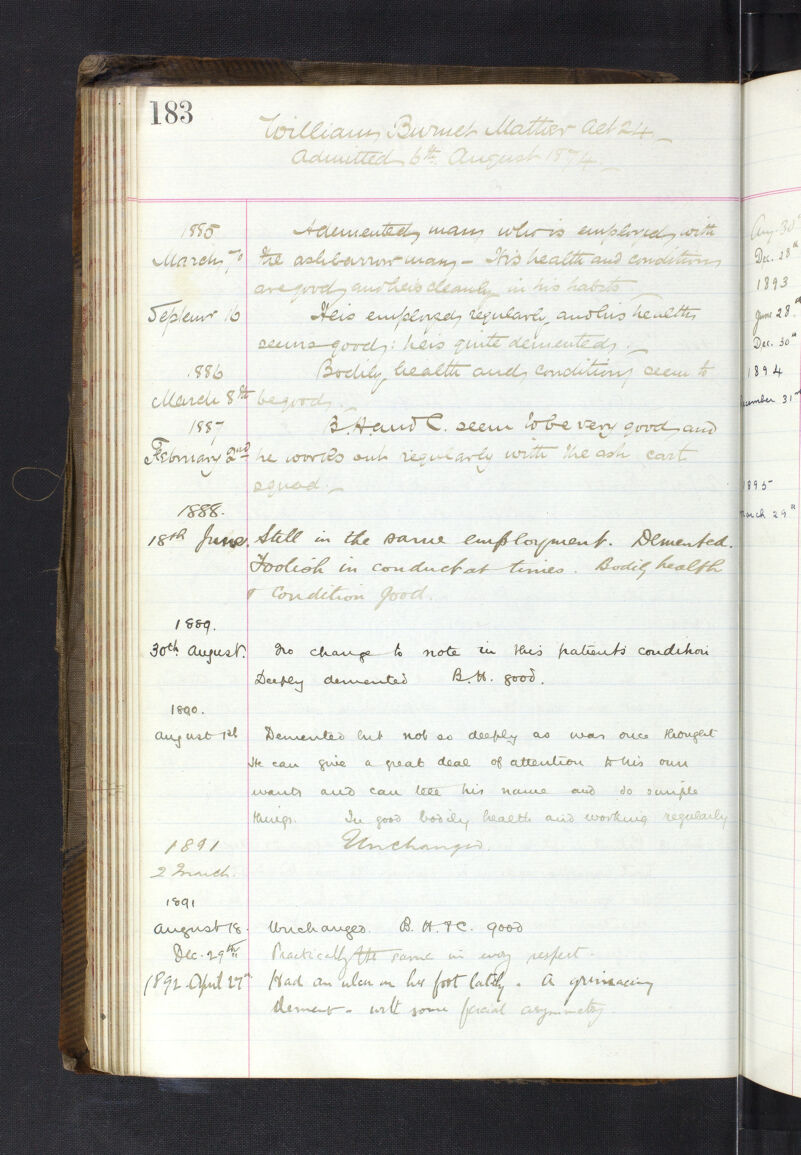 183
William Burnet Mather Aet 24
Admitted 6th August 1874
1885 A demented man who is employed with
March 7 the ash barrow man – His health and condition
are good, and he is cleanly in his habits
Septemr 16 He is employed regularly, and his health
seems good: he is quite demented.
1886 Bodily health and condition seem to
March 8th be good.
1887 B. H. and C. seem to be very good and
February 2nd he works out regularly with the ash cart
squad.
1888.
18th June. Still in the same employment. Demented.
Foolish in conduct at times. Bodily health
& condition good.
1889.
30th August. No change to note in this patients condition
Deeply demented B. H. good.
1890.
August 1st Demented but not so deeply as was once thought
He can give a great deal of attention to his own
wants and can tell his name and do simple
things. In good bodily health and working regularly
1891 Unchanged.
2 March.
1891
August 18. Unchanged. B. H. & C. good
Dec. 29th Practically the same in every respect.
1892 April 27th Had an ulcer on his foot lately. A grimacing
dement – with some facial asymmetry
Aug. 30th
Dec. 28th
1893
June 28th
Dec. 30th
1894
cember 31st
1895
march 29th